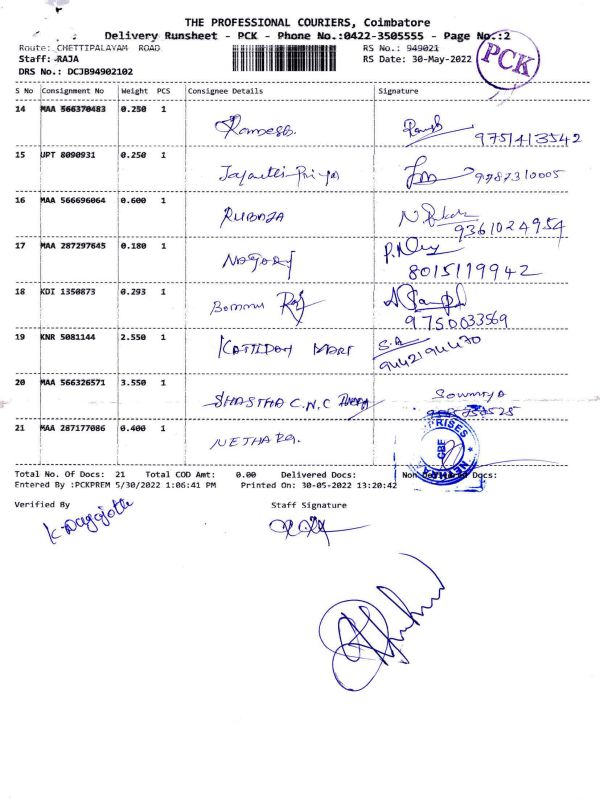 THE PROFESSIONAL COURIERS, Coimbatore
Delivery Runsheet - PCK - Phone No.:0422-3505555 - Page No.:2
Route: CHETTIPALAYAM ROAD RS No.: 949021
Staff: RAJA RS Date: 30-May-2022
DRS No.: DCJB94902102
PCK
S No Consignment No Weight PCS Consignee Details Signature
14 MAA 566370483 0.250 1 Ramesh.
9751413542
15 UPT 8090931 0.250 1 Jayanthi Priya
9787310005
16 MAA 566696064 0.600 1 RUBAJA
9361024954
17 MAA 287297645 0.180 1
8015119942
18 KDI 1350873 0.293 1 Bommu Raj
9750033569
19 KNR 5081144 2.550 1 MART
S.A
9442194470
20 MAA 566326571 3.550 1 SHASTHA C.N.C Sowmya
21 MAA 287177086 0.400 1 NETHARA.
CBE
Total No. Of Docs: 21 Total COD Amt: 0.00 Delivered Docs: Non Delivered Docs:
Entered By :PCKPREM 5/30/2022 1:06:41 PM Printed On: 30-05-2022 13:20:42
Verified By Staff Signature